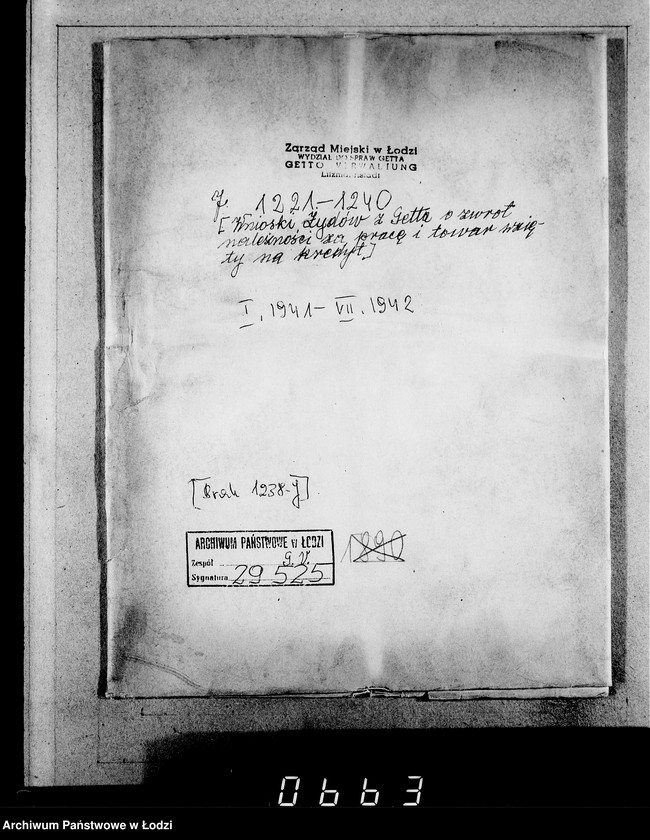 Zarząd Miejski w Łodzi
WYDZIAŁ DO SPRAW GETTA
GETTO VERWALTUNG
J. 1221–1240
[Wnioski Żydów z Getta o zwrot
należności za pracę i towar wzię-
ty na kredyt]
I. 1941 – VII. 1942
[Brak 1238-J]
ARCHIWUM PAŃSTWOWE w ŁODZI
Zespół G.V.
Sygnatura 29525
1890
0663
Archiwum Państwowe w Łodzi